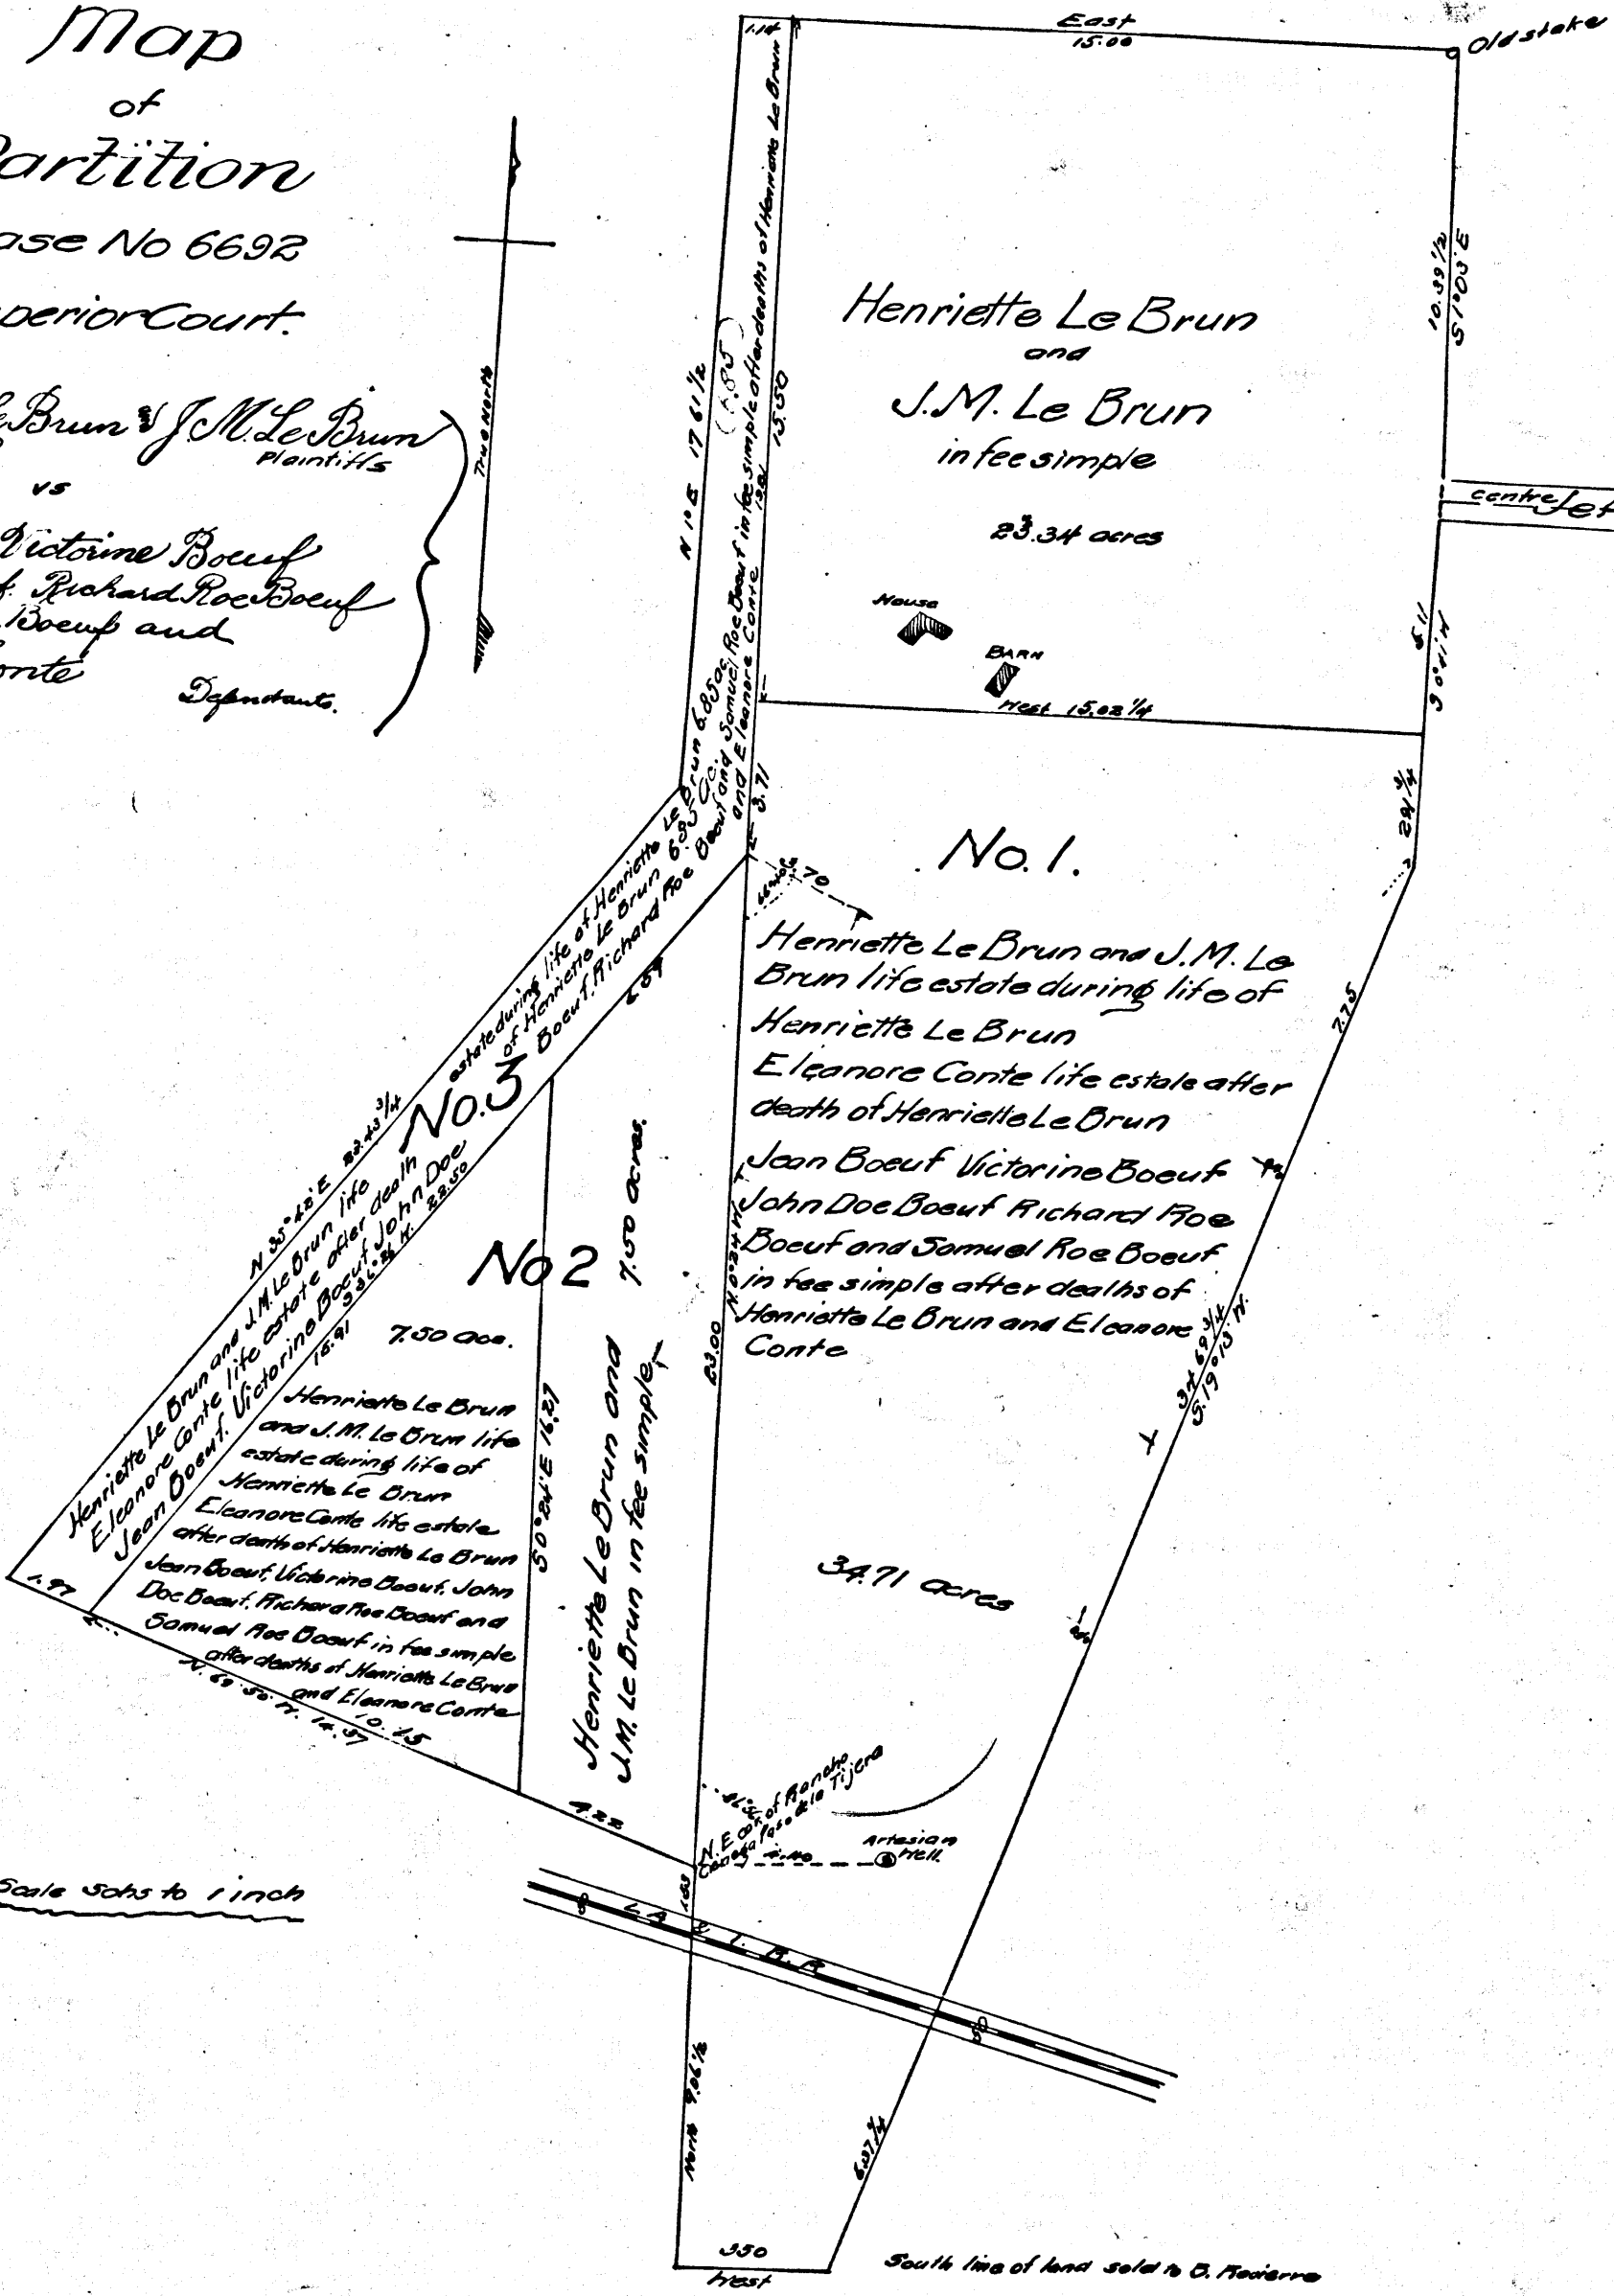 Map
of
Partition
ase No 6692
perior Court.
Le Brun and J. M. Le Brun
Plaintiffs
vs
Victorine Boeuf
f. Richard Roe Boeuf
Boeuf and
onte
Defendants.
True North
1.14
East
15.00
Old stake
10.39 1/2
S 1° 03' E
Henriette Le Brun
and
J.M. Le Brun
in fee simple
23.34 acres
House
BARN
West 15.02 1/4
centre Jef
5.11
N 1° E 17 61 1/2
(6.85)
15.50
3.71
No. 1.
70
Henriette Le Brun and J.M. Le
Brun life estate during life of
Henriette Le Brun
Eleanore Conte life estate after
death of Henriette Le Brun
Jean Boeuf Victorine Boeuf
John Doe Boeuf Richard Roe
Boeuf and Samuel Roe Boeuf
in fee simple after deaths of
Henriette Le Brun and Eleanore
Conte
34.71 acres
7.75
34 69 3/4
S. 19° 13' W.
N. 0° 24' W
23.00
No. 3
Henriette Le Brun and J.M. Le Brun life estate during life of Henriette Le Brun 6.85 ac.
Eleanore Conte life estate after death of Henriette Le Brun 6.85 ac.
Jean Boeuf. Victorine Boeuf John Doe Boeuf. Richard Roe Boeuf and Samuel Roe Boeuf in fee simple after deaths of Henriette Le Brun
and Eleanore Conte
N 35° 42' E 22.43 3/4
22.50
6.59
15.91
1.97
No 2
7.50 acs.
7.50 acres.
Henriette Le Brun
and J.M. Le Brun life
estate during life of
Henriette Le Brun
Eleanore Conte life estate
after death of Henriette Le Brun
Jean Boeuf, Victorine Boeuf, John
Doe Boeuf, Richard Roe Boeuf and
Samuel Roe Boeuf in fee simple
after deaths of Henriette Le Brun
and Eleanore Conte
S 0° 24' E 16.27
Henriette Le Brun and
J.M. Le Brun in fee simple
14.57
10.25
4.22
N.E. cor. of Rancho
Cienega Paso de la Tijera
Artesian
Well
1.53
L A & I. R. R
80
80
Scale 5 chs to 1 inch
North 9.06 1/2
6.37 1/4
350
West
South line of land sold to